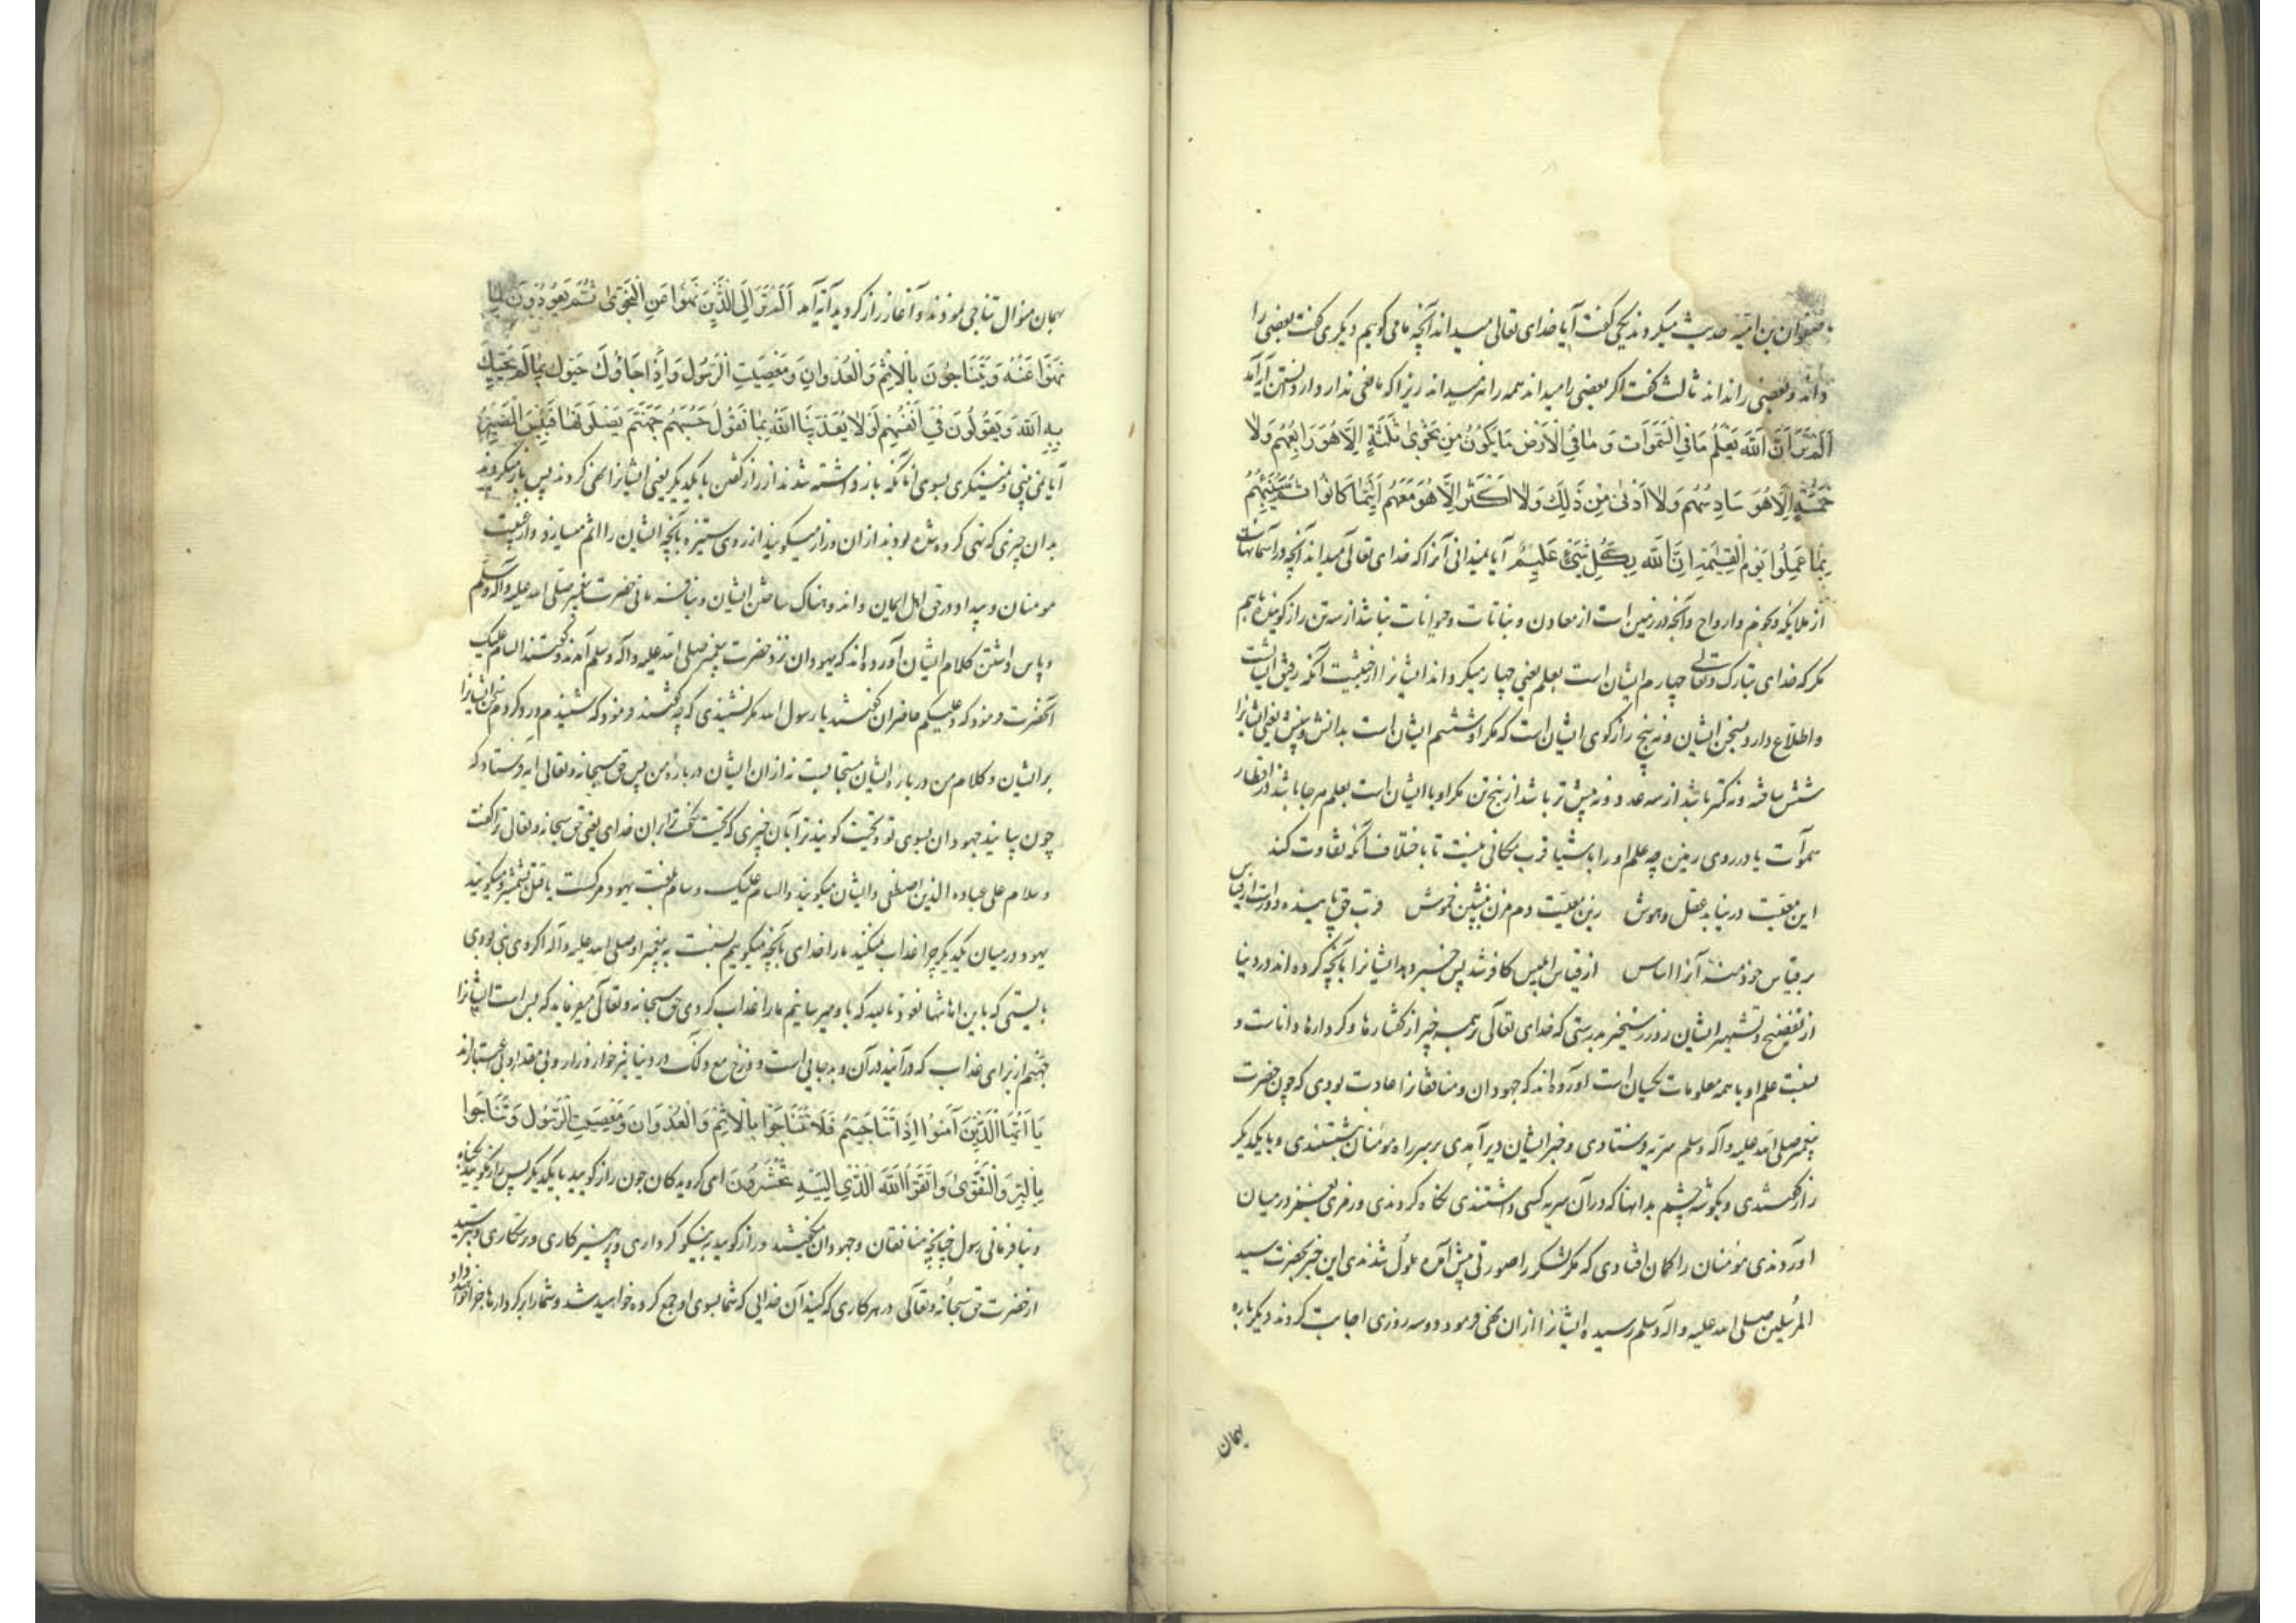 با صفوان بن امیه حدیث میکردند یکی گفت آیا خدای تعالی میداند آنچه ما می کوییم دیگری گفت بعضی را
داند و بعضی را نداند ثالث گفت اکر بعضی را میداند همه را نیز میداند زیرا که مانعی ندارد از دانستن آن آیه آمد
اَلَمْ تَرَ اَنَّ اللّٰهَ یَعْلَمُ مَا فِی السَّمٰوَاتِ وَ مَا فِی الْاَرْضِ مَا یَکُونُ مِنْ نَجْوٰی ثَلٰثَةٍ اِلَّا هُوَ رَابِعُهُمْ وَلَا
خَمْسَةٍ اِلَّا هُوَ سَادِسُهُمْ وَلَا اَدْنٰی مِنْ ذٰلِکَ وَلَا اَکْثَرَ اِلَّا هُوَ مَعَهُمْ اَیْنَمَا کَانُوا ثُمَّ یُنَبِّئُهُمْ
بِمَا عَمِلُوا یَوْمَ الْقِیٰمَةِ اِنَّ اللّٰهَ بِکُلِّ شَیْءٍ عَلِیمٌ آیا نمیدانی آنرا که خدای تعالی میداند آنچه در آسمانهاست
از ملایکه و نجوم و ارواح و آنچه در زمین است از معادن و نباتات و حیوانات نباشد از سه تن راز کوینده بهم
مکر که خدای تبارک وتعالی چهارم ایشان است بعلم یعنی چهار میکرداند ایشانرا از حیثیت آنکه رفیق ایشانست
و اطلاع دارد بسخن ایشان و نه پنج راز کوی ایشان است که مکر او ششم ایشان است بدانش و بینش یعنی ایشانرا
شش ساخته و نه کمتر باشد از سه عدد و نه بیش تر باشد از پنج تن مکر او با ایشان است بعلم هر جا باشند در اقطار
سموآت یا در روی زمین چه علم او را باشیا قرب مکانی نیست تا باختلاف امکنه تفاوت کند
این معیت در نیابد عقل و هوش زین معیت دم مزن بنشین خموش قرب حق با بنده دور است از قیاس
بر قیاس خود منه آنرا اساس از قیاس ابلیس کافر شد پس خبر دهد ایشانرا بآنچه کرده اند در دنیا
از تفضیح و تشهیر ایشان روز رستخیز بدرستی که خدای تعالی بهمه چیز از کفتارها و کردارها داناست و
نسبت علم او با همه معلومات یکسان است آورده اند که جهودان و منافقانرا عادت بودی که چون حضرت
پیغمبر صلی الله علیه وآله وسلم سریه فرستادی و خبر ایشان دیر آمدی بر سر راه مومنان نشستندی و با یکدیکر
راز کفتندی و بکوشه چشم بدانها که در آن سریه کسی داشتندی نکاه کردندی و رمزی در میان
آوردندی مومنان را کمان افتادی که مکر لشکر را صورتی پیش آمده ملول شدندی این خبر بحضرت سید
المرسلین صلی الله علیه وآله وسلم رسیده ایشانرا از ان نهی فرمود دو سه روزی اجابت کردند دیکر باره
همان
همان منوال تناجی نمودند و آغاز راز کردند آیه آمد اَلَمْ تَرَ اِلَی الَّذِینَ نُهُوا عَنِ النَّجْوٰی ثُمَّ یَعُودُونَ لِمَا
نُهُوا عَنْهُ وَ یَتَنَاجَوْنَ بِالْاِثْمِ وَالْعُدْوَانِ وَ مَعْصِیَتِ الرَّسُولِ وَ اِذَا جَاؤُکَ حَیَّوْکَ بِمَا لَمْ یُحَیِّکَ
بِهِ اللّٰهُ وَ یَقُولُونَ فِی اَنْفُسِهِمْ لَوْلَا یُعَذِّبُنَا اللّٰهُ بِمَا نَقُولُ حَسْبُهُمْ جَهَنَّمُ یَصْلَوْنَهَا فَبِئْسَ الْمَصِیرُ
آیا نمی بینی و نمینکری بسوی آنانکه باز داشته شدند از راز کفتن با یکدیکر یعنی ایشانرا نهی کردند پس باز میکردند
بدان چیزی که نهی کرده شده بودند از ان و راز میکویند از روی ستیزه بآنچه ایشان را اثم میسازد و از غیبت
مومنان و بیداد در حق اهل ایمان و اندوهناک ساختن ایشان و بنافرمانی حضرت پیغمبر صلی الله علیه وآله وسلم
و پاس داشتن کلام ایشان آورده اند که یهودان نزد حضرت پیغمبر صلی الله علیه وآله وسلم آمدند و کفتند السام علیک
آنحضرت فرمود که وعلیکم حاضران کفتند یا رسول الله مکر نشنیدی که چه کفتند فرمود که شنیدم و رد کردم سخن ایشانرا
بر ایشان و کلام من در باره ایشان مستجابست نه از ان ایشان در باره من پس حق سبحانه وتعالی آیه فرستاد که
چون بیایند جهودان بسوی تو و تحیت کویند ترا بآن چیزی که تحیت نکفت ترا بران خدای یعنی حق سبحانه وتعالی ترا کفت
وسلام علی عباده الذین اصطفی و ایشان میکویند والسام علیک و سام بلغت یهود مرکست یا قتل بشمشیر و میکویند
یهود در میان یکدیکر چرا عذاب نمیکند ما را خدای بآنچه میکوییم نسبت به پیغمبر او صلی الله علیه وآله اکر وی نبی بودی
بایستی که باین اهانتها نعوذ بالله که باو میرسانیم ما را عذاب کردی حق سبحانه وتعالی میفرماید که بس است ایشانرا
جهنم از برای عذاب که درآیند در آن و بد جایی است دوزخ مع ذلک در دنیا نیز خوار و زار و بی مقدار و بی اعتبارند
یَا اَیُّهَا الَّذِینَ آمَنُوا اِذَا تَنَاجَیْتُمْ فَلَا تَتَنَاجَوْا بِالْاِثْمِ وَالْعُدْوَانِ وَ مَعْصِیَتِ الرَّسُولِ وَ تَنَاجَوْا
بِالْبِرِّ وَالتَّقْوٰی وَاتَّقُوا اللّٰهَ الَّذِی اِلَیْهِ تُحْشَرُونَ ای کرویدکان چون راز کویید با یکدیکر پس راز مکویید بکناه
و بنافرمانی رسول چنانچه منافقان و جهودان میکفتند و راز کویید به نیکو کرداری و پرهیزکاری و رستکاری و بترسید
از حضرت حق سبحانه وتعالی در هر کاری که کنید آن خدایی که شما بسوی او جمع کرده خواهید شد و شما را بر کردارها جزا خواهد داد